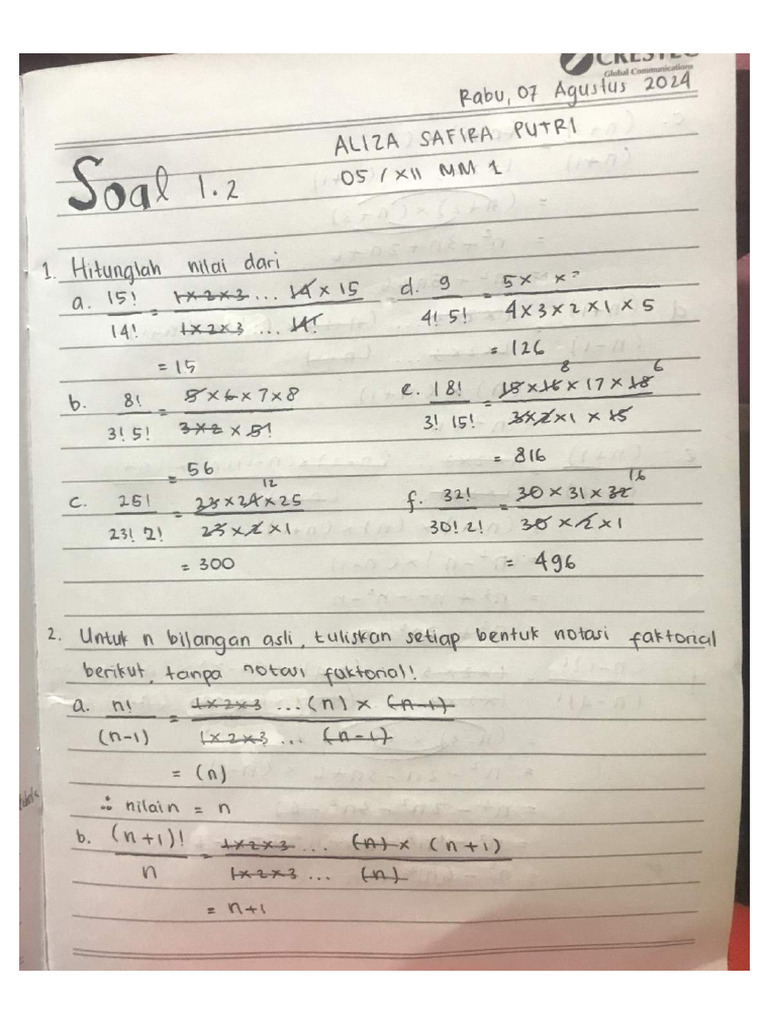 CRESTEC
Global Communications
Rabu, 07 Agustus 2024
ALIZA SAFIRA PUTRI
05 / XII MM 1
Soal 1.2
1. Hitunglah nilai dari
a. 15! / 14! = 1x2x3 ... 14 x 15 / 1x2x3 ... 14!
= 15
d. 9 / 4! 5! = 5 x x / 4 x 3 x 2 x 1 x 5
= 126
b. 8! / 3! 5! = 5 x 6 x 7 x 8 / 3x2 x 5!
= 56
e. 18! / 3! 15! = 15 x 16 x 17 x 18 / 3x2x1 x 15
8 6
= 816
c. 25! / 23! 2! = 23 x 24 x 25 / 23 x 2 x 1
12
= 300
f. 32! / 30! 2! = 30 x 31 x 32 / 30 x 2 x 1
16
= 496
2. Untuk n bilangan asli, tuliskan setiap bentuk notasi faktorial
berikut, tanpa notasi faktorial!
a. n! / (n-1) = 1x2x3 ... (n) x (n-1) / 1x2x3 ... (n-1)
= (n)
∴ nilai n = n
b. (n+1)! / n = 1x2x3 ... (n) x (n+1) / 1x2x3 ... (n)
= n+1